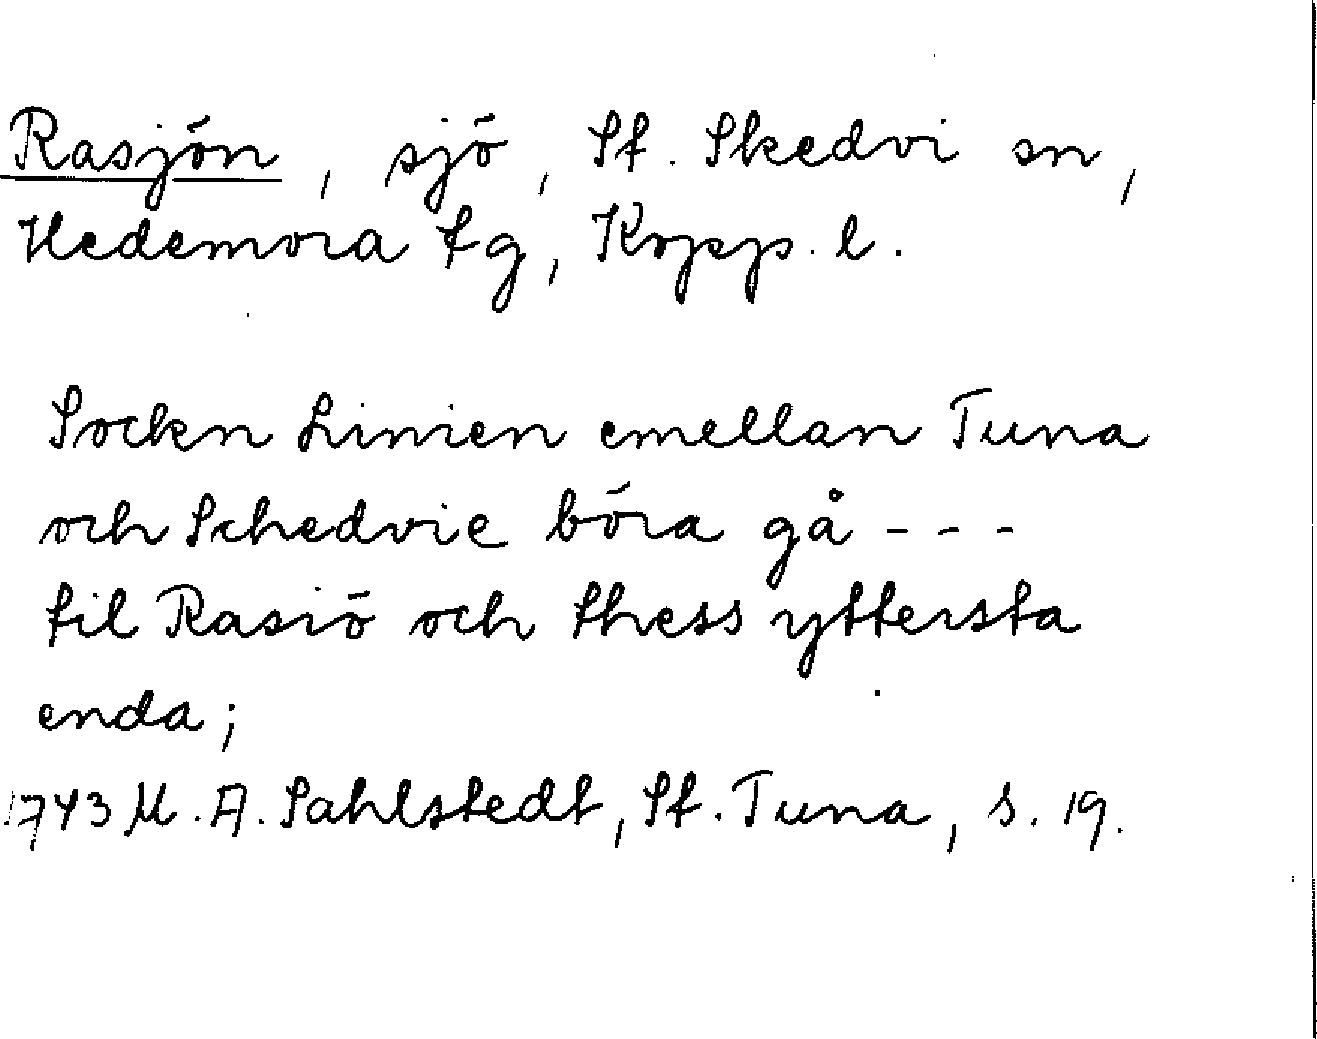 Rasjön, sjö, St. Skedvi sn,
Hedemora tg, Kopp. l.
Sockn Linien emellan Tuna
och Schedvie böra gå ---
til Rasiö och thess yttersta
enda;
1743 M. A. Sahlstedt, St. Tuna, s. 19.